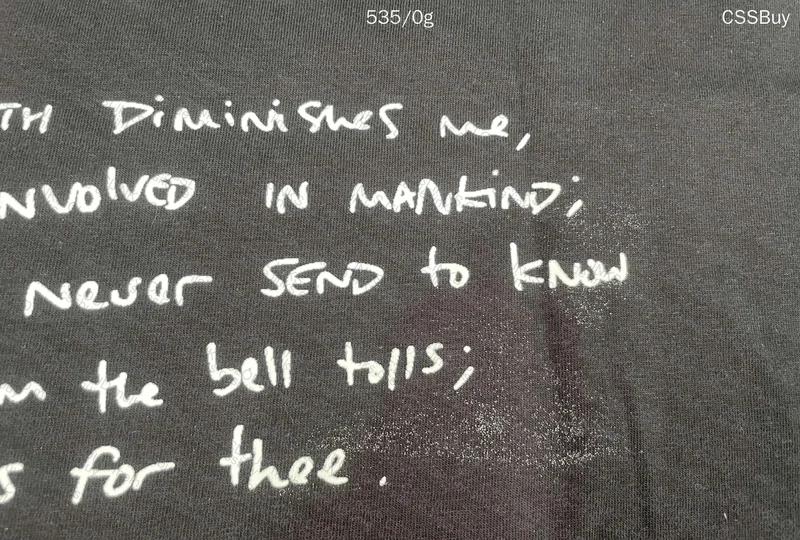 535/0g
CSSBuy
TH Diminishes me,
NVOlVED IN MANkiND;
Never SEND to kNOW
m the bell tolls;
s for thee.